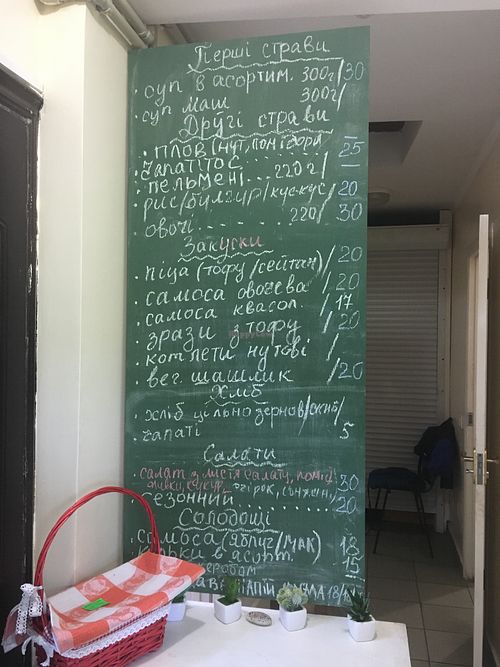 Перші страви
. суп в асортим. 300г/30
. суп маш 300г/
Другі страви
. плов (нут, помідори 25
чапатітос
. пельмені... 220г/
. рис/булгур/кускус 20
. овочі. 220/30
Закуски
. піца (тофу/сейтан)/20
. самоса овочева /20
. самоса квасол. /17
. зрази з тофу /20
. котлети нутові /
. вег. шашлик /20
Хліб
. хліб цільнозернов/ский/
. чапаті 5
Салати
. салат з листя салату, помід
огірок, 30
. сезонний 20
Солодощі
. самоса (яблуч/мак) 18
в асорт. 15